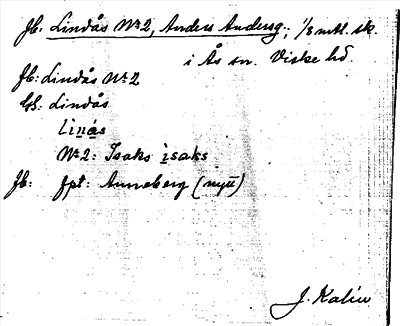 Jb: Lindås No 2, Anders Andersg.; 1/8 mtl. sk.
i Ås sn. Viske hd.
Jb: Lindås No 2
Gs: Lindås
Linás
No 2: Isaks ìsaks
Jb: fpt: Anneberg (nytt)
J. Kalin